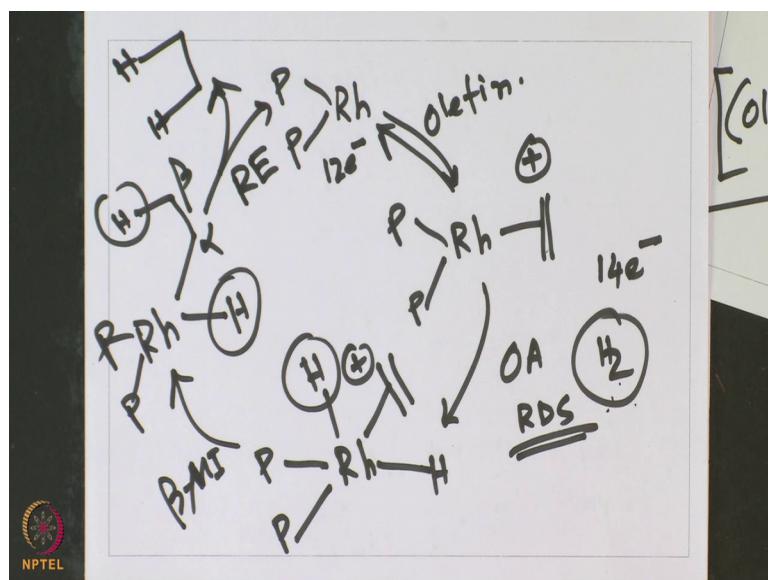 H
H
P
P
Rh
12e⁻
Olefin.
[Col
RE
H
β
α
P
P
Rh
⊕
14e⁻
R
Rh
H
P
OA
H₂
RDS
H
⊕
P
Rh
H
P
β-MI
NPTEL